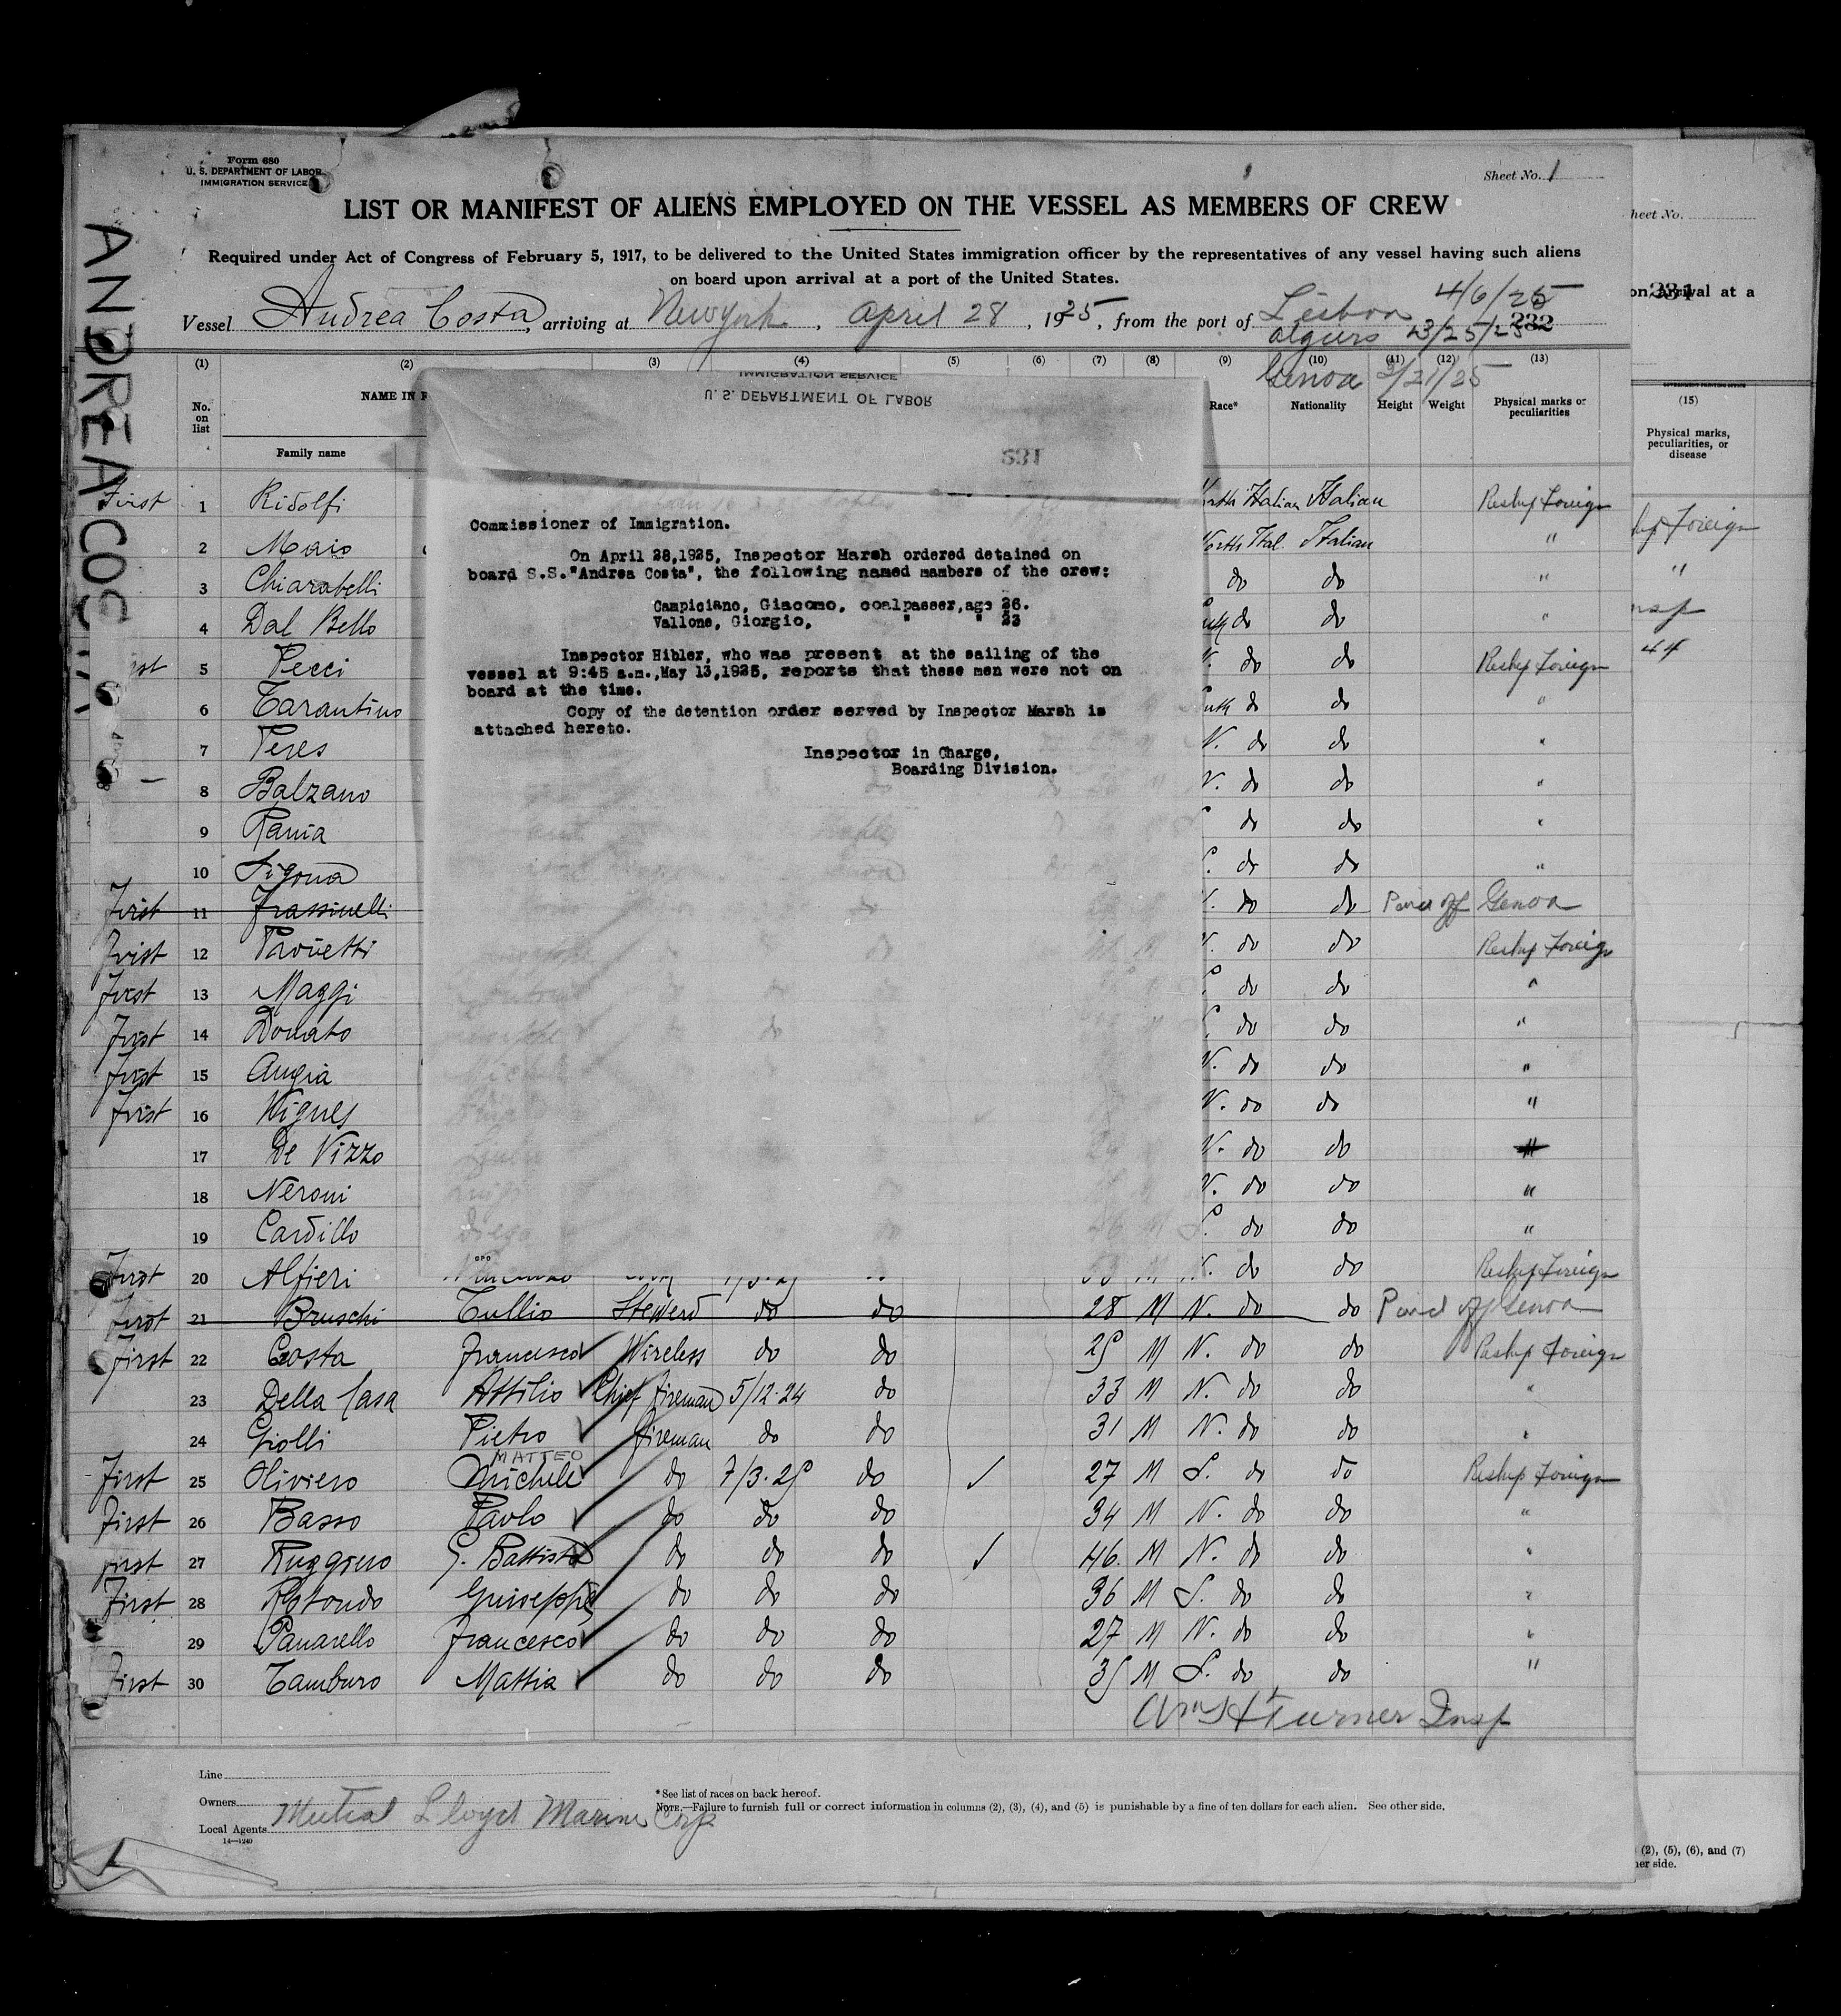 Form 680
U. S. DEPARTMENT OF LABOR
IMMIGRATION SERVICE
Sheet No. 1
LIST OR MANIFEST OF ALIENS EMPLOYED ON THE VESSEL AS MEMBERS OF CREW
heet No.
Required under Act of Congress of February 5, 1917, to be delivered to the United States immigration officer by the representatives of any vessel having such aliens
on board upon arrival at a port of the United States.
Vessel Andrea Costa, arriving at New York, april 28, 1925, from the port of Lisbon 4/6/25
algiers 3/25/25 232
Genoa 3/21/25
on arrival at a
231
ANDREA COSTA
(1) (2) (3) (4) (5) (6) (7) (8) (9) (10) (11) (12) (13)
No. on list
NAME IN F
Family name
Race*
Nationality
Height
Weight
Physical marks or peculiarities
(15)
Physical marks, peculiarities, or disease
IMMIGRATION SERVICE
U. S. DEPARTMENT OF LABOR
231
Commissioner of Immigration.
On April 28,1925, Inspector Marsh ordered detained on
board S.S."Andrea Costa", the following named mambers of the crew:
Campiciano, Giacomo, coalpasser,age 26.
Vallone, Giorgio, " " 23
Inspector Hibler, who was present at the sailing of the
vessel at 9:45 a.m.,May 13,1925, reports that these men were not on
board at the time.
Copy of the detention order served by Inspector Marsh is
attached hereto.
Inspector in Charge,
Boarding Division.
First 1 Ridolfi North Italian Italian Reship Foreign
2 Maio North Ital. Italian "
3 Chiarabelli do do "
4 Dal Bello South do do "
5 Pecci N. do do Reship Foreign
6 Tarantino South do do "
7 Peres N. do do "
8 Balzano N. do do "
9 Rania S. do do "
10 Sigona S. do do "
First 11 Frassinelli N. do do Paid off Genoa
First 12 Pavietti N. do do Reship Foreign
First 13 Maggi S. do do "
First 14 Donato S. do do "
First 15 Augia N. do do "
First 16 Wignes N. do do "
17 De Vizzo N. do do "
18 Neroni N. do do "
19 Cardillo S. do do "
First 20 Alfieri N. do do Reship Foreign
First 21 Bruschi Tullio Steward do do 28 M N. do do Paid off Genoa
First 22 Costa Francesco Wireless do do 25 M N. do do Reship Foreign
23 Della Casa Attilio Chief fireman 5/12.24 do 33 M N. do do "
24 Giolli Pietro fireman do do 31 M N. do do "
MATTEO
First 25 Oliviero Michele do 7/3.25 do 27 M S. do do Reship Foreign
First 26 Basso Paolo do do do 34 M N. do do "
First 27 Ruggiero G. Battista do do do 46 M N. do do "
First 28 Rotondo Guiseppe do do do 36 M S. do do "
29 Panarello Francesco do do do 27 M N. do do "
First 30 Tamburo Mattia do do do 35 M S. do do "
Turner Insp
Line
Owners
Local Agents Mutual Lloyd Marine Corp
14—1240
*See list of races on back hereof.
NOTE.—Failure to furnish full or correct information in columns (2), (3), (4), and (5) is punishable by a fine of ten dollars for each alien. See other side.
(2), (5), (6), and (7)
her side.